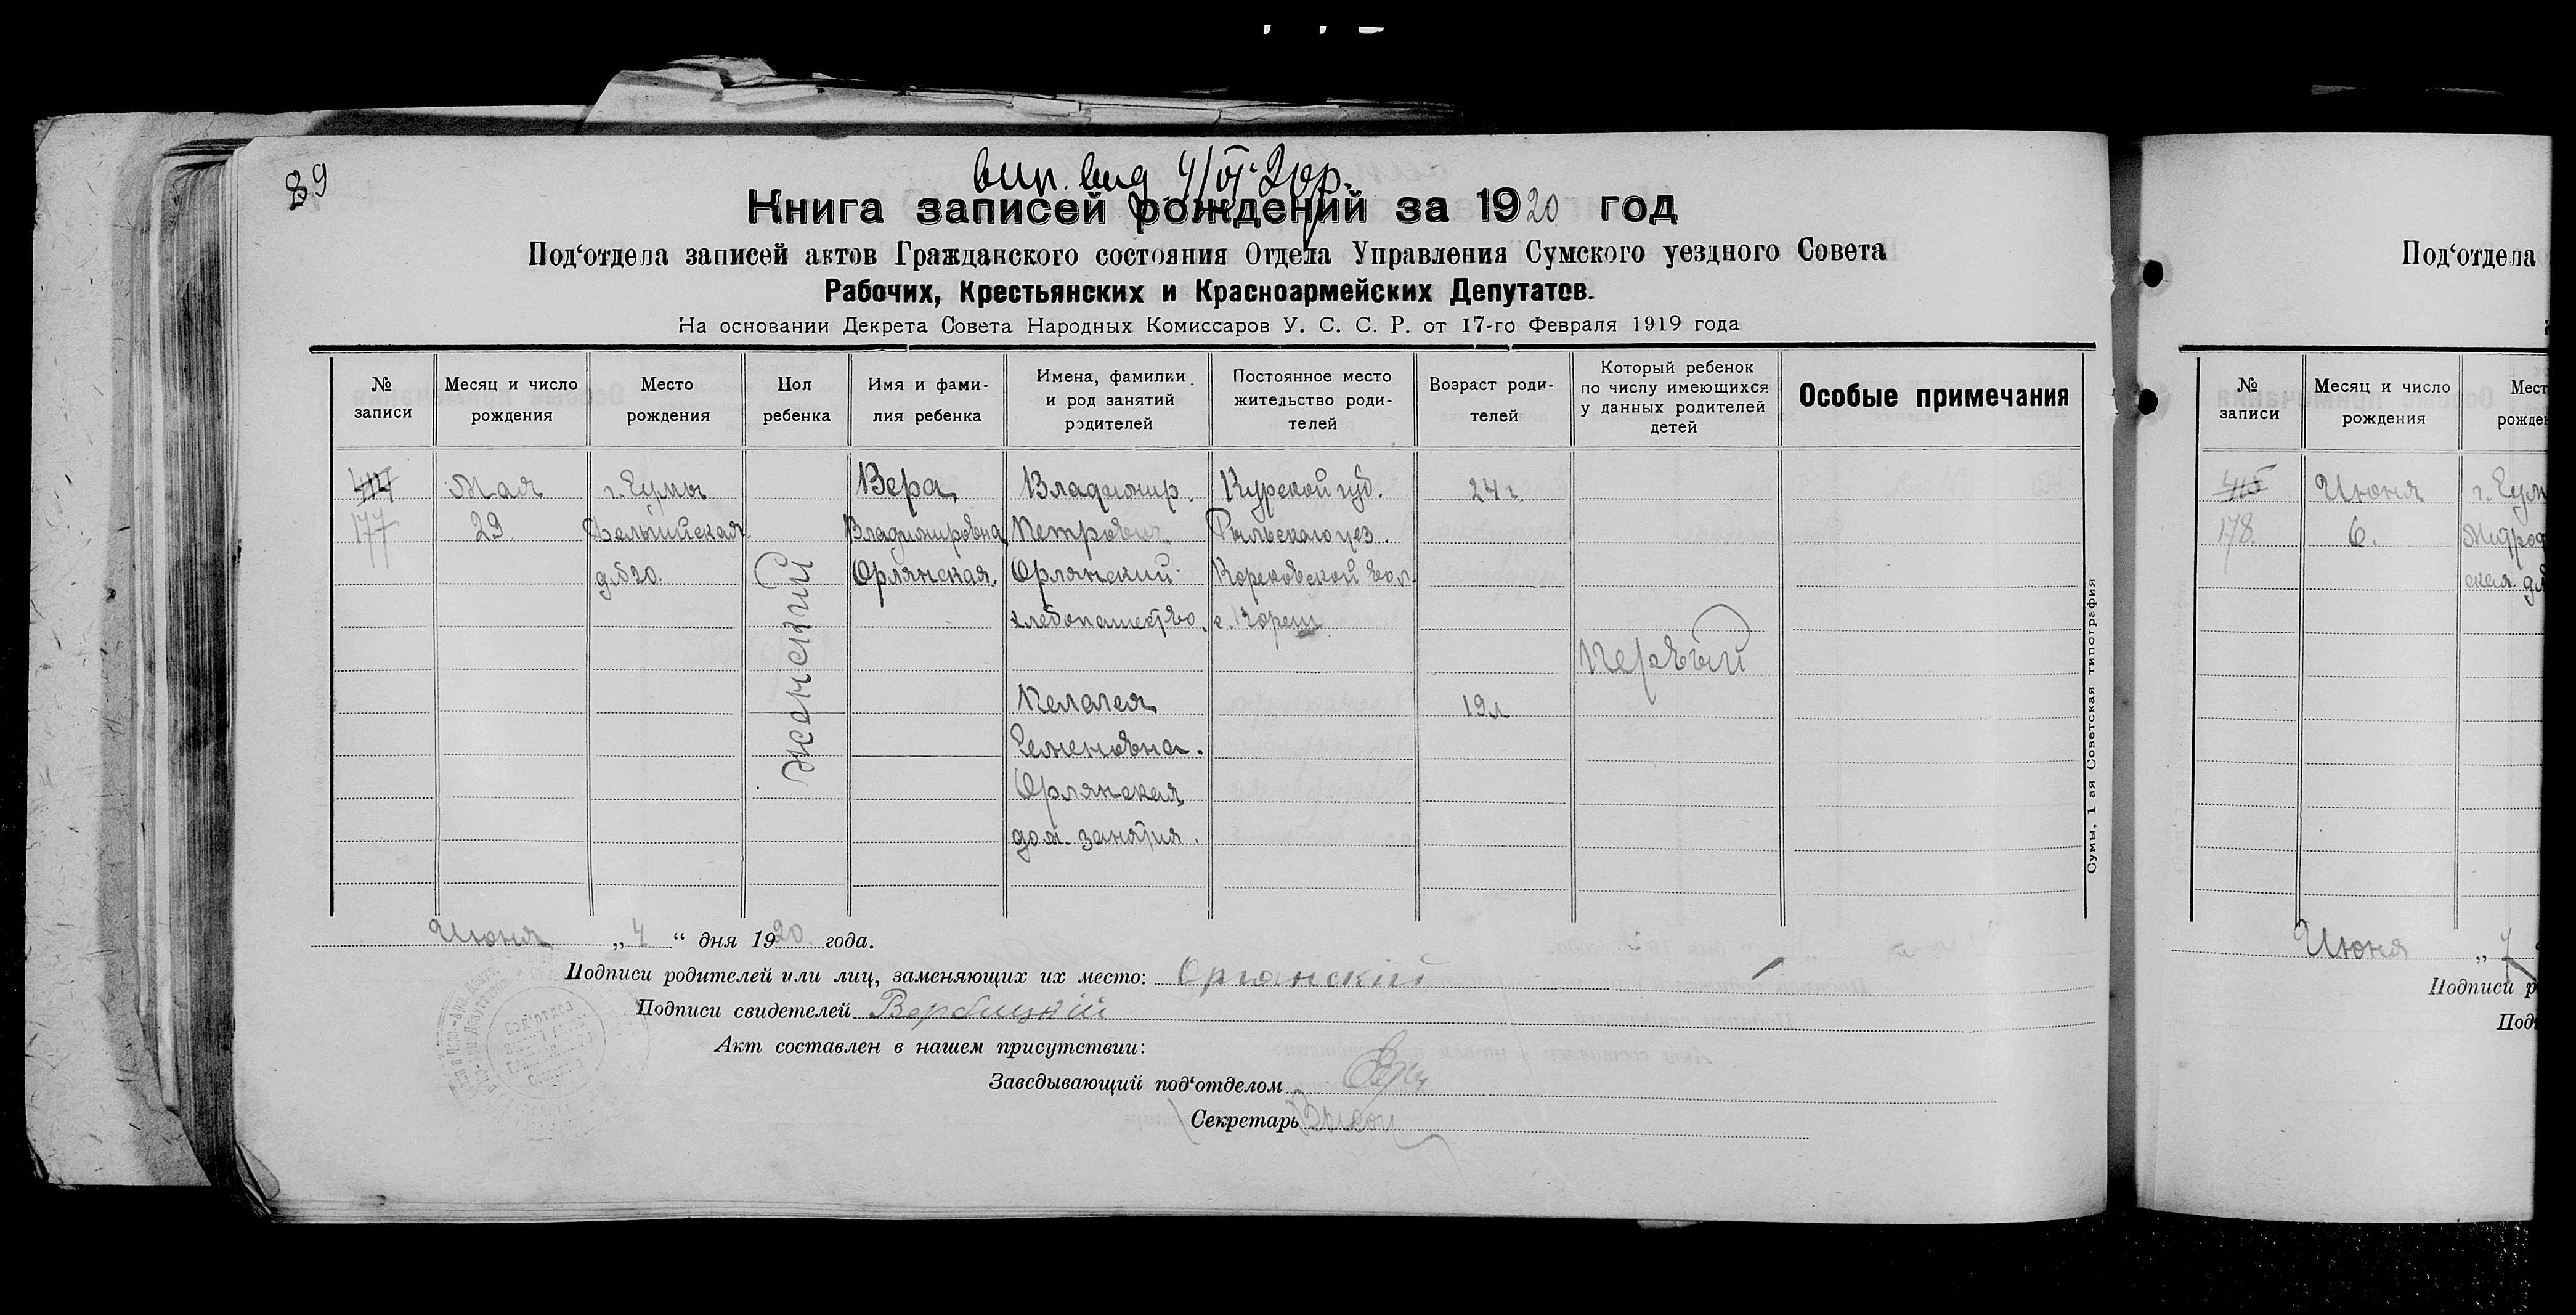 89
вип. вид 4/VI 20р.
Книга записей рождений за 1920 год
Под‘отдела записей актов Гражданского состояния Отдела Управления Сумского уездного Совета
Рабочих, Крестьянских и Красноармейских Депутатов.
На основании Декрета Совета Народных Комиссаров У. С. С. Р. от 17-го Февраля 1919 года
№
записи
Месяц и число
рождения
Место
рождения
Пол
ребенка
Имя и фами-
лия ребенка
Имена, фамилии
и род занятий
родителей
Постоянное место
жительство роди-
телей
Возраст роди-
телей
Который ребенок
по числу имеющихся
у данных родителей
детей
Особые примечания
414
177
Мая
29.
г. Сумы
Бельгийская
д. №20.
женский
Вера
Владимировна
Орлянская.
Владимир.
Петрович
Орлянский
хлебопашество.
Пелагея
Семеновна.
Орлянская
дом. занятия.
Курской губ.
Рыльского уез.
Кореновской вол.
24 г.
19 л
Первый
Сумы, 1 ая Советская типография
Июня „ 4 “ дня 1920 года.
Подписи родителей или лиц, заменяющих их место: Орлянскій
Подписи свидетелей Вербицкій
Акт составлен в нашем присутствии:
Заведывающий под‘отделом
Секретарь
Под‘отдела
№
записи
Месяц и число
рождения
Мест
рожден
415
178.
Июня
6.
г. Сум
ская
Июня „ 7
Подписи р
Под